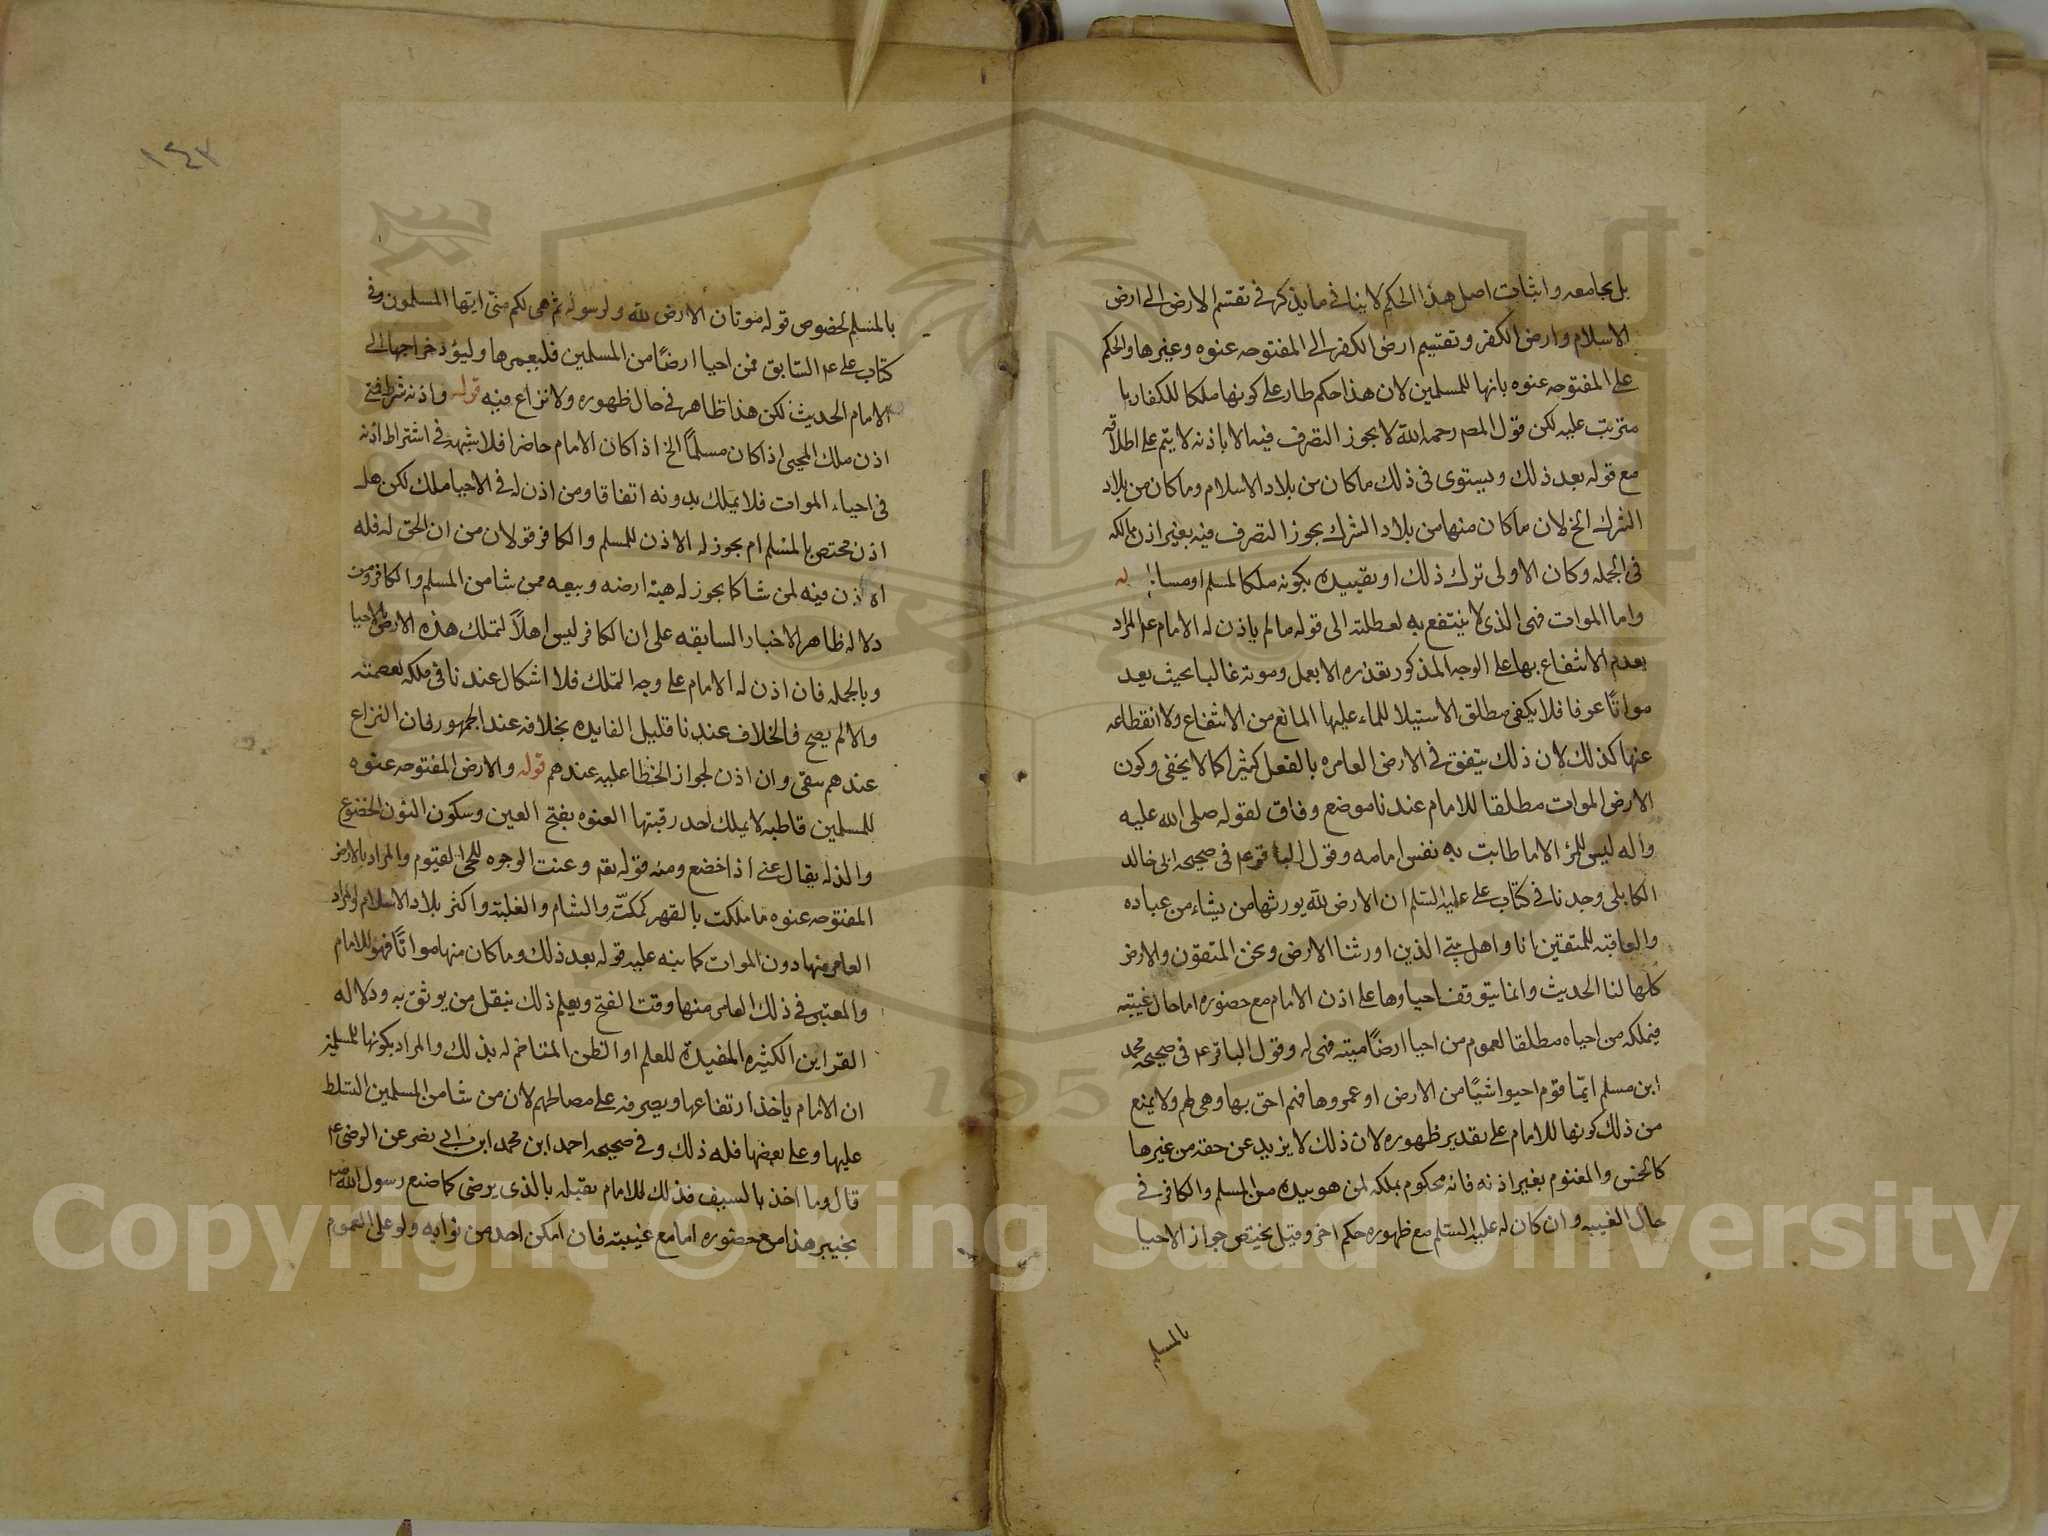 بل يجامعه واثبات اصل هذا الحكم لا ينافي ما يذكر في تقسيم الارض الى ارض
الاسلام وارض الكفر وتقسيم ارض الكفر الى المفتوحه عنوه وغيرها والحكم
على المفتوحه عنوه بانها للمسلمين لان هذا حكم طار على كونها ملكا للكفار
مترتب عليه لكن قول المص رحمه الله لا يجوز التصرف فيه الا باذنه لا يتم على اطلاقه
مع قوله بعد ذلك ويستوى في ذلك ما كان من بلاد الاسلام وما كان من بلاد
الشرك الخ لان ما كان منها من بلاد الشرك يجوز التصرف فيه بغير اذن مالكه
في الجمله وكان الاولى ترك ذلك او تقييده بكونه ملكا لمسلم او
واما الموات فهى الذى لا ينتفع به لعطلته الى قوله ما لم ياذن له الامام ع المراد
بعدم الانتفاع بها على الوجه المذكور تعذره الا بعمل ومونة غالبا بحيث يعد
مواتًا عرفا فلا يكفى مطلق الاستيلا للماء عليها المانع من الانتفاع ولا انقطاعه
عنها كذلك لان ذلك يتفق في الارض العامره بالفعل كثيرا كما لا يخفى وكون
الارض الموات مطلقا للامام عندنا موضع وفاق لقوله صلى الله عليه
واله ليس للمرٔ الا ما طابت به نفس امامه وقول الباقر ع في صحيحه ابى خالد
الكابلى وجدنا في كتاب على عليه السلم ان الارض لله يورثها من يشاء من عباده
والعاقبه للمتقين انا واهل بيتى الذين اورثنا الارض ونحن المتقون والارض
كلها لنا الحديث وانما يتوقف احياوها على اذن الامام مع حضوره اما حال غيبته
فيملكه من احياه مطلقا لعموم من احيا ارضًا ميته فهى له وقول الباقر ع في صحيحه محمد
ابن مسلم ايّما قوم احيوا شيًا من الارض او عمروها فهم احق بها وهى لهم ولا يمنع
من ذلك كونها للامام على تقدير ظهوره لان ذلك لا يزيد عن حقه من غيرها
كالخمس والمغنوم بغير اذنه فانه محكوم بملكه لمن هو بيده من المسلم والكافر في
حال الغيبه وان كان له عليه السلم مع ظهوره حكم اخر وقيل يختص جواز الاحيا
بالمسلم
١٤٣
بالمسلم لخصوص قوله موتان الارض لله ولرسوله ثم هى لكم منّى ايتها المسلمون وفي
كتاب على ع السابق فمن احيا ارضًا من المسلمين فليعمرها وليؤد خراجها الى
الامام الحديث لكن هذا ظاهر في حال ظهوره ولا نزاع فيه قوله واذنه شرط فمتى
اذن ملك المحيى اذا كان مسلمًا الخ اذا كان الامام حاضرا فلا شبهه في اشتراط اذنه
في احياء الموات فلا يملك بدونه اتفاقا ومن اذن له في الاحيا ملك لكن هل
اذن مختص بالمسلم ام يجوز له الاذن للمسلم والكافر قولان من ان الحق له فله
ان ياذن فيه لمن شا كما يجوز له هبة ارضه وبيعه ممن شا من المسلم والكافر ومن
دلاله ظاهر الاخبار السابقه على ان الكافر ليس اهلاً لتملك هذه الارض بالاحيا
وبالجمله فان اذن له الامام على وجه التملك فلا اشكال عندنا في ملكه لعصمته
والا لم يصح فالخلاف عندنا قليل الفايده بخلافه عند الجمهور فان النزاع
عندهم يبقى وان اذن لجواز الخطا عليه عندهم قوله والارض المفتوحه عنوه
للمسلمين قاطبه لا يملك احد رقبتها العنوه بفتح العين وسكون النون الخضوع
والذله يقال عنى اذا خضع ومنه قوله تعم وعنت الوجوه للحى القيوم والمراد بالارض
المفتوحه عنوه ما ملكت بالقهر كمكة والشام والغلبة واكثر بلاد الاسلام والمراد
العامر منها دون الموات كما نبه عليه قوله بعد ذلك وما كان منها مواتًا فهو للامام
والمعتبر في ذلك العامر منها وقت الفتح ويعلم ذلك بنقل من يوثق به ودلاله
القراين الكثيره المفيدة للعلم او الظن المتاخم له بذلك والمراد بكونها للمسلمين
ان الامام ياخذ ارتفاعها ويصرفه على مصالحهم لان من شا من المسلمين التسلط
عليها وعلى بعضها فله ذلك وفي صحيحه احمد ابن محمد ابن ابى نصر عن الرضى ع
قال وما اخذ بالسيف فذلك للامام يقبله بالذى يرضى كما صنع رسول الله ص
بخيبر هذا مع حضوره اما مع غيبته فان امكن احد من نوابه ولو على العموم
Copyright © King Saud University
1957